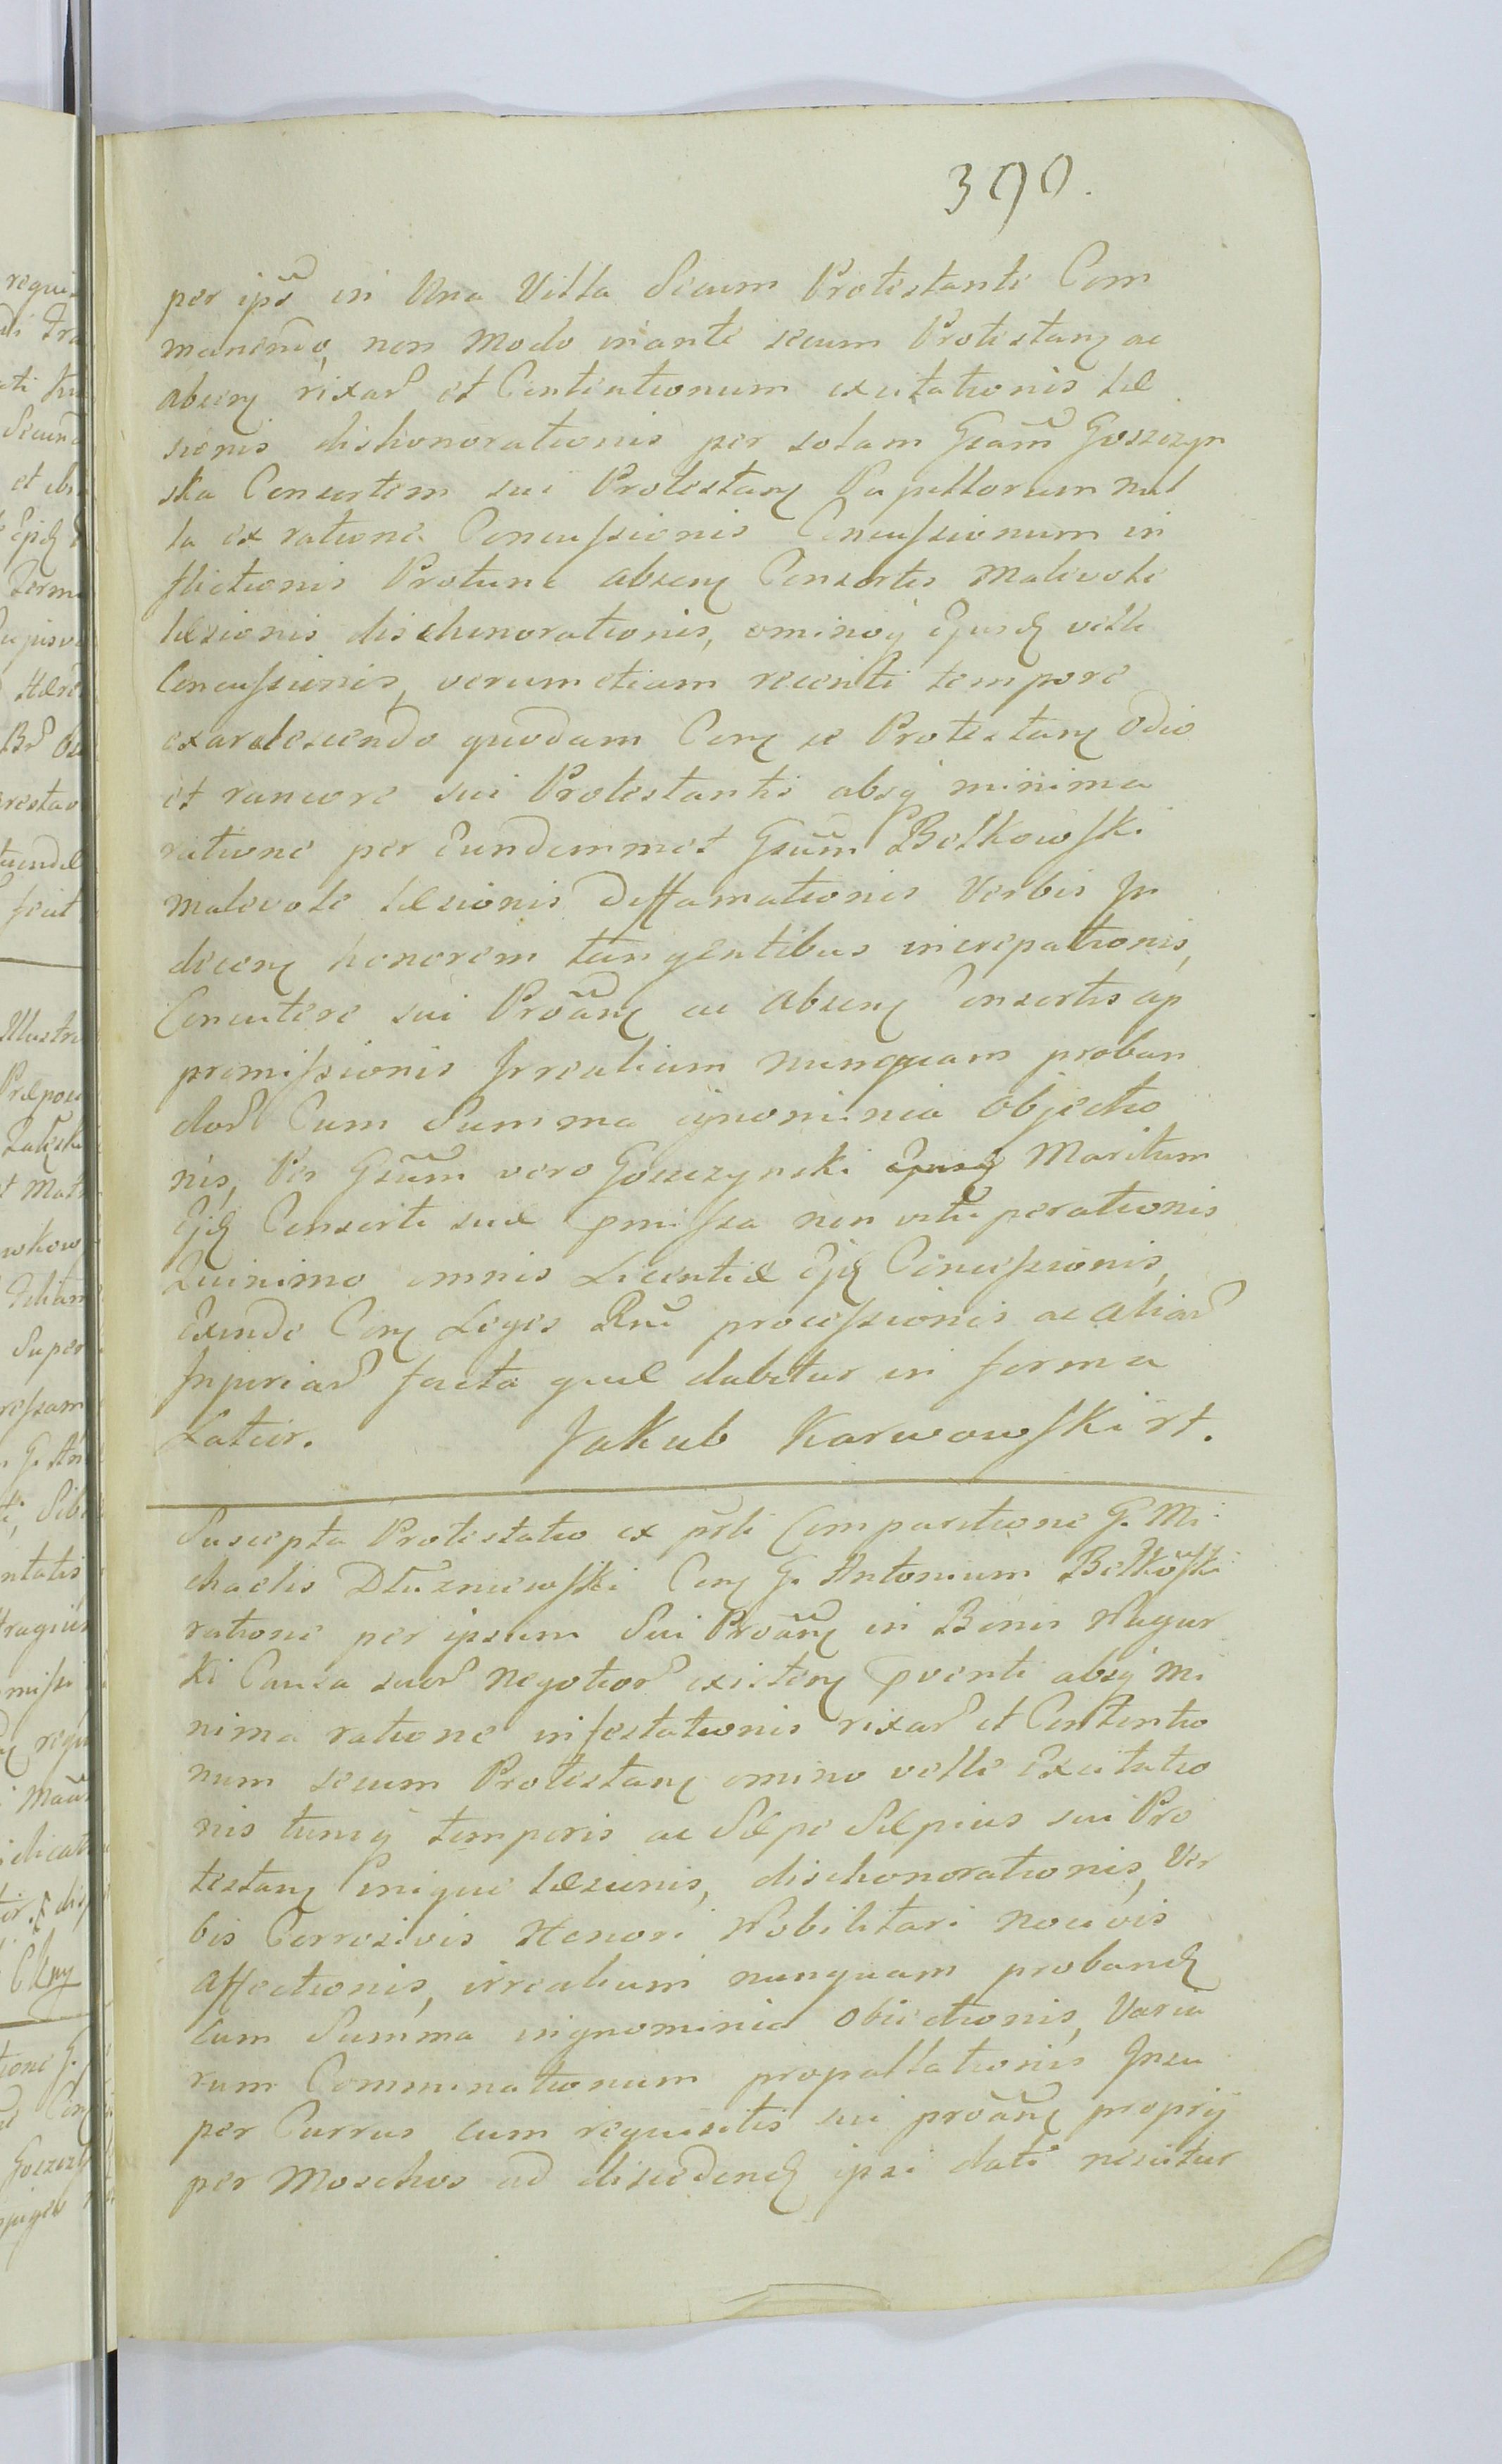 390.
per ipš in Una Villa Secum Protestante Com
manendo, non modo inante secum Protestanꝫ ac
absenꝫ rixar̃ et Contentionum excitationis Læ
sionis dishonorationis per solam Gsam̃ Goszczyn
ska Consortem sui Protestanꝫ Pupillorum nul
la ex ratione Concussionis Concussionum in
flictionis Protunc absenꝫ Consortis malevole
læsionis dischonorationis, ominoꝗ Ejusdꝫ velle
Concussionis, verum etiam recenti tempore
exardescendo quodam Conꝫ se Protestanꝫ Odio
et rancore sui Protestantis absꝗ minima
ratione per Eundemmet Gsum̃ Bełkowski
malevole læsionis Diffamationis Verbis In
decenꝫ honorem tangentibus increpationis,
Concutere sui Proãnꝫ ac absenꝫ Consortis ap
promissionis Irrealium nunquam proban
dor̃ Cum Summa ignominia objectio
nis, Per Gsum̃ vero Goszczynski Maritum
Ejdꝫ Consorti suæ pmissa non vituperationis
Quinimo omnis Licentiæ Ejdꝫ Concessionis,
Exinde Conꝫ Leges Rni processionis ac aliar̃
Injuriar̃ facta quæ dabitur in forma
Latiõr. Jakub Karwowski rt.
Suscepta Protestatio ex pr̃li Comparitione G. Mi
chaelis Dłuzniewski Conꝫ G. Antonium Bełkõski
ratione per ipsum Sui Proãnꝫ in Bonis Wagur
ki Causa suor̃ negotior̃ existenꝫ pventi absꝗ mi
nima ratione infestationis rixar̃ et Contentio
num secum Protestanꝫ omino velle Excitatio
nis tuncꝗ temporis ac Sæpe Sæpius sui Pro
testanꝫ inique læsionis, dischonorationis, Ver
bis Corrosivis Honori Nobilitari nocivis
affectionis, irrealium nunquam probandꝫ
cum Summa ingnominia obiectionis, Varia
rum Comminationum propallationis Insu
per Currus cum requisitis sui proãnꝫ proprij
per Moschos ad discedendꝫ ipsi dati nescitur